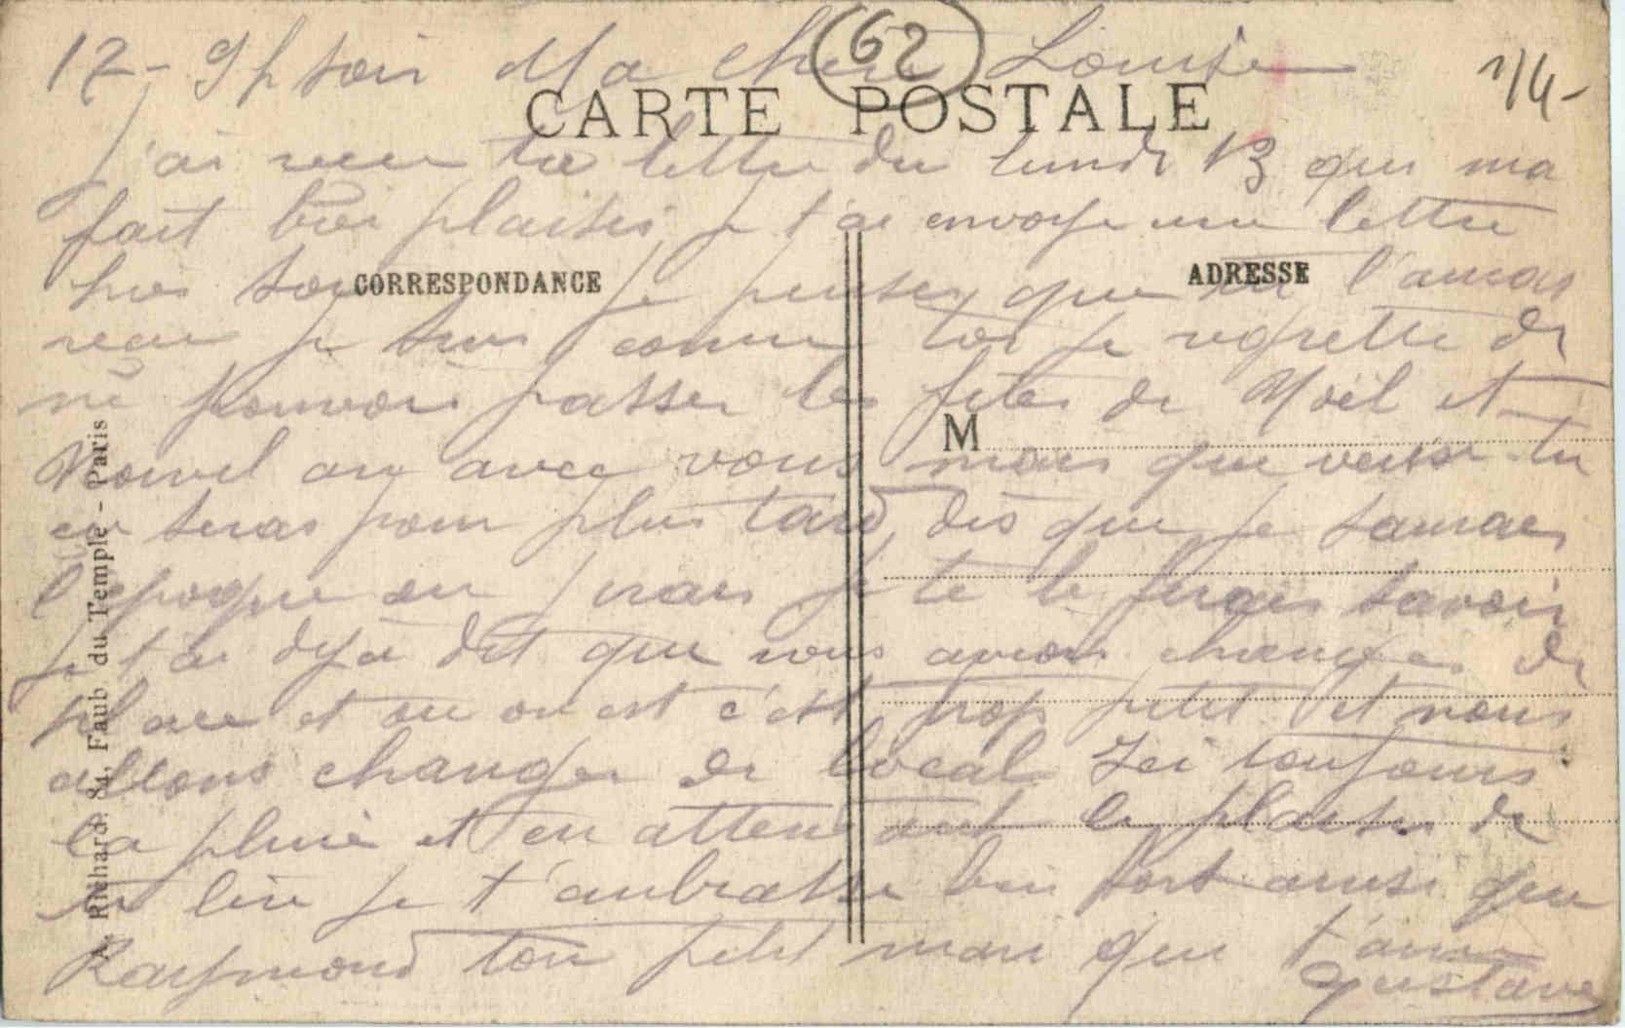 17 - 9h soir Ma chère Louise
62
1/4-
CARTE POSTALE
j'ai recu ta lettre du lundi 13 qui ma
fait bien plaisir, je t'ai envoye une lettre
hier soir je penses que tu l'auras
CORRESPONDANCE
ADRESSE
recu je suis comme toi je regrette de
ne pouvoir passer les fetes de Noël et
M
Nouvel an avec vous mais que veux-tu
ce seras pour plus tard, dès que je saurais
l'epoque ou j'irais je te le ferais savoir
je t'ai deja dit que nous avions changes de
place et ou on est c'est trop petit et nous
allons changer de local Ici toujours
la pluie et en attendant le plaisir de
te lire je t'anbrasse bien fort ainsi que
Raymond ton petit mari qui t'aime
Gustave
Richard. 84, Faub du Temple - Paris